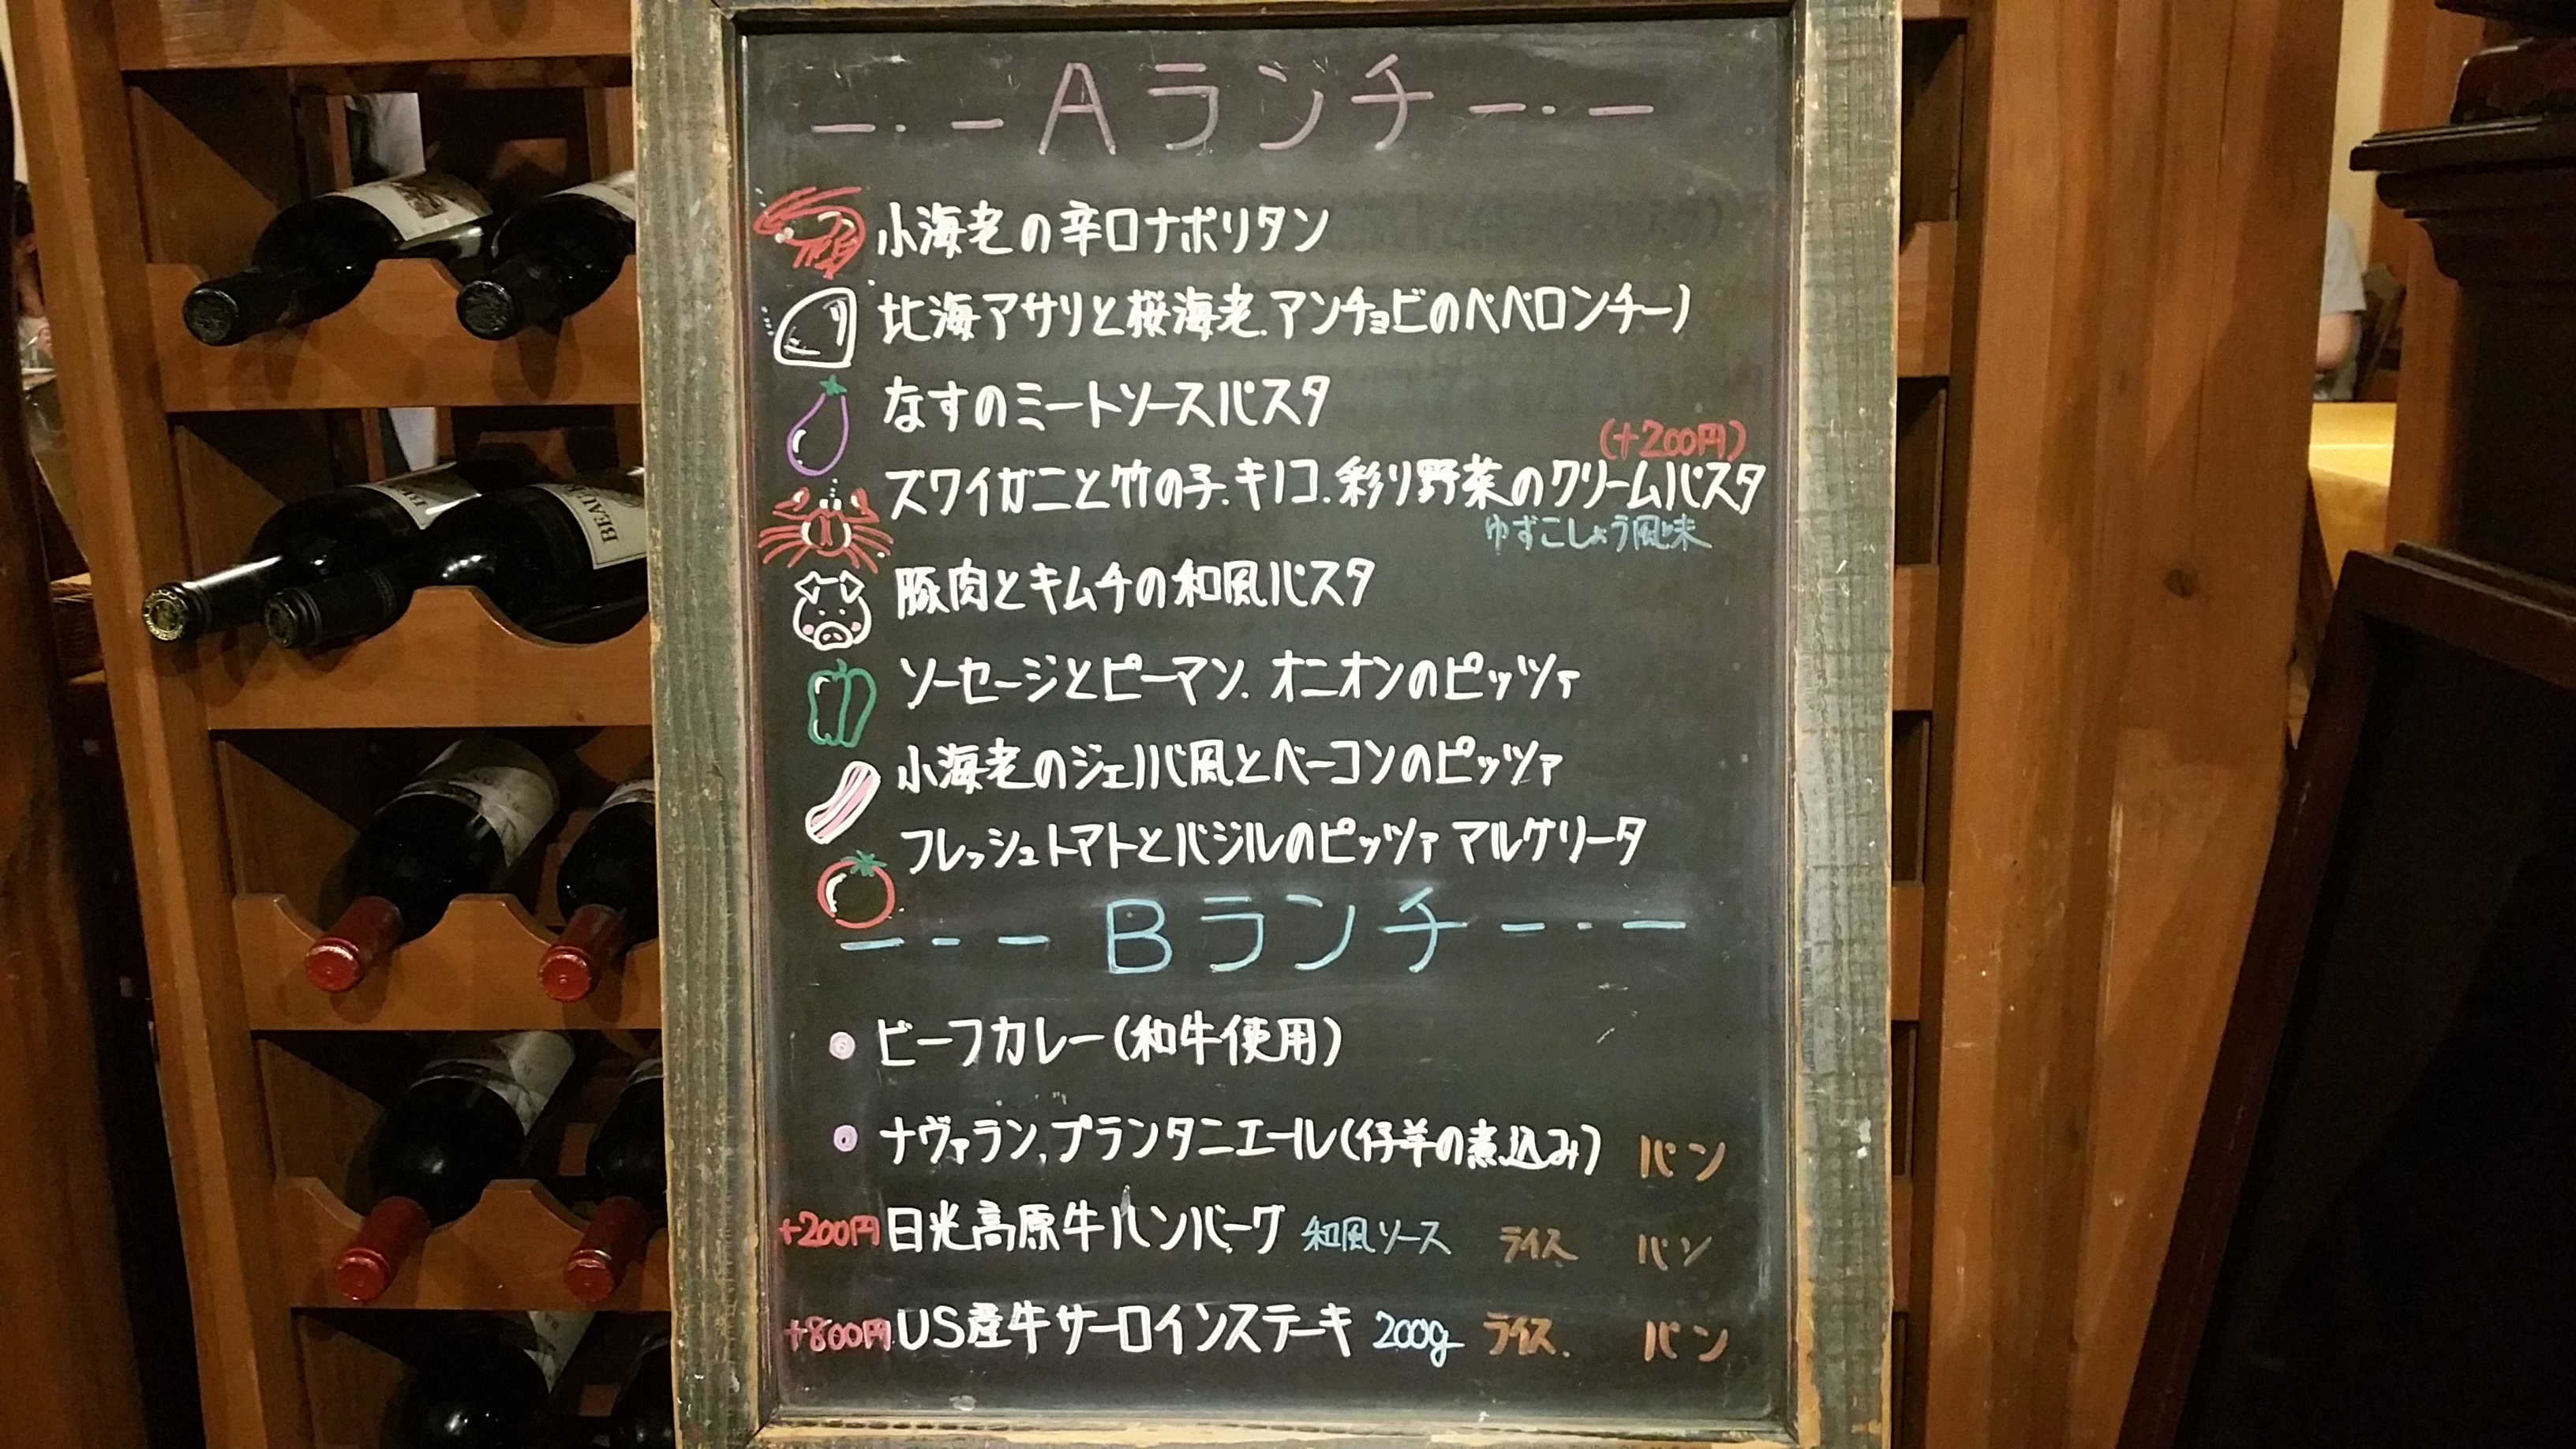 Aランチ
小海老の辛口ナポリタン
北海アサリと桜海老.アンチョビのペペロンチーノ
なすのミートソースパスタ
(+200円)
ズワイガニと竹の子.キノコ.彩り野菜のクリームパスタ
ゆずこしょう風味
豚肉とキムチの和風パスタ
ソーセージとピーマン.オニオンのピッツァ
小海老のジェノバ風とベーコンのピッツァ
フレッシュトマトとバジルのピッツァ マルゲリータ
Bランチ
ビーフカレー(和牛使用)
ナヴァラン、プランタニエール(仔羊の煮込み) パン
+200円 日光高原牛ハンバーグ 和風ソース ライス パン
+800円 US産牛サーロインステーキ 200g ライス. パン